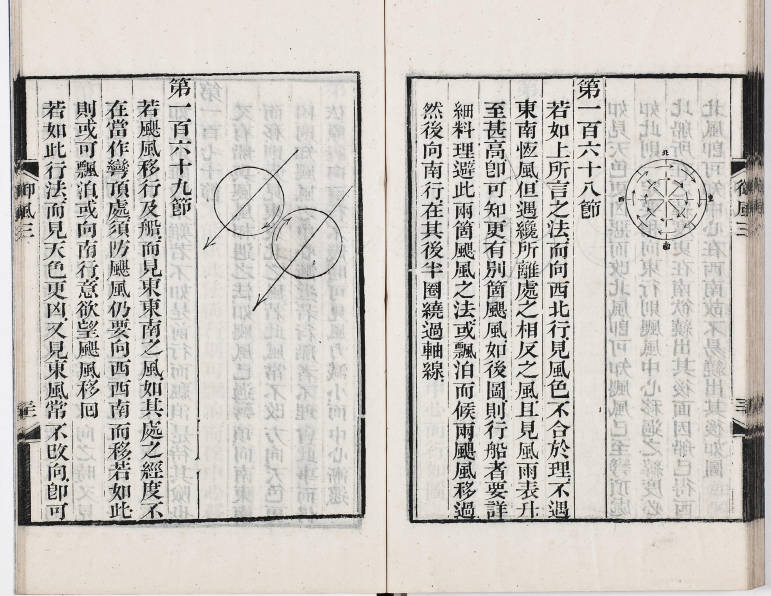 北
東
南
西
第一百六十八節
若如上所言之法而向西北行見風色不合於理不遇
東南恆風但遇纔所離處之相反之風且見風雨表升
至甚高卽可知更有別箇颶風如後圖則行船者要詳
細料理避此兩箇颶風之法或飄泊而候兩颶風移過
然後向南行在其後半圈繞過軸線
御風三
三
第一百六十九節
若颶風移行及船而見東東南之風如其處之經度不
在當作彎頂處須防颶風仍要向西西南而移若如此
則或可飄泊或向南行意欲望颶風移囘
若如此行法而見天色更凶又見東風常不改向卽可
御風三